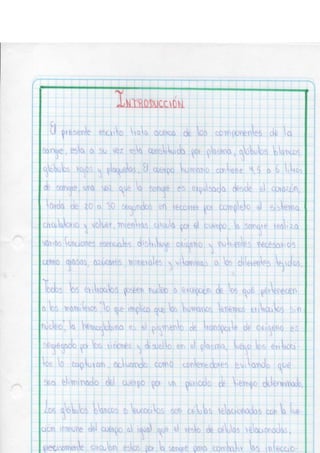 INTRODUCCIÓN
El presente escrito trata acerca de los componentes de la
sangre, esta a su vez está constituida por plasma, glóbulos blancos,
glóbulos rojos y plaquetas. El cuerpo humano contiene 4.5 a 6 litros
de sangre, una vez que la sangre es expulsada desde el corazón,
tarda de 20 a 30 segundos en recorrer por completo el sistema
circulatorio y volver, mientras circula por el cuerpo, la sangre realiza
varias funciones esenciales distribuye oxígeno y nutrientes necesarios
como grasas, azúcares minerales y vitaminas a los diferentes tejidos.
Todos los eritrocitos poseen núcleo a excepción de los que pertenecen
a los mamíferos lo que implica que los humanos tenemos eritrocitos sin
núcleo, la hemoglobina es el pigmento de transporte de oxígeno es
segregado por los riñones y disuelto en el plasma, luego los eritroci-
tos lo capturan, actuando como contenedores evitando que
sea eliminado del cuerpo por un periodo de tiempo determinado.
Los glóbulos blancos o leucocitos son células relacionadas con la fun-
ción inmune del cuerpo al igual que el resto de células relacionadas,
circulan estas por la sangre para combatir las infeccio-